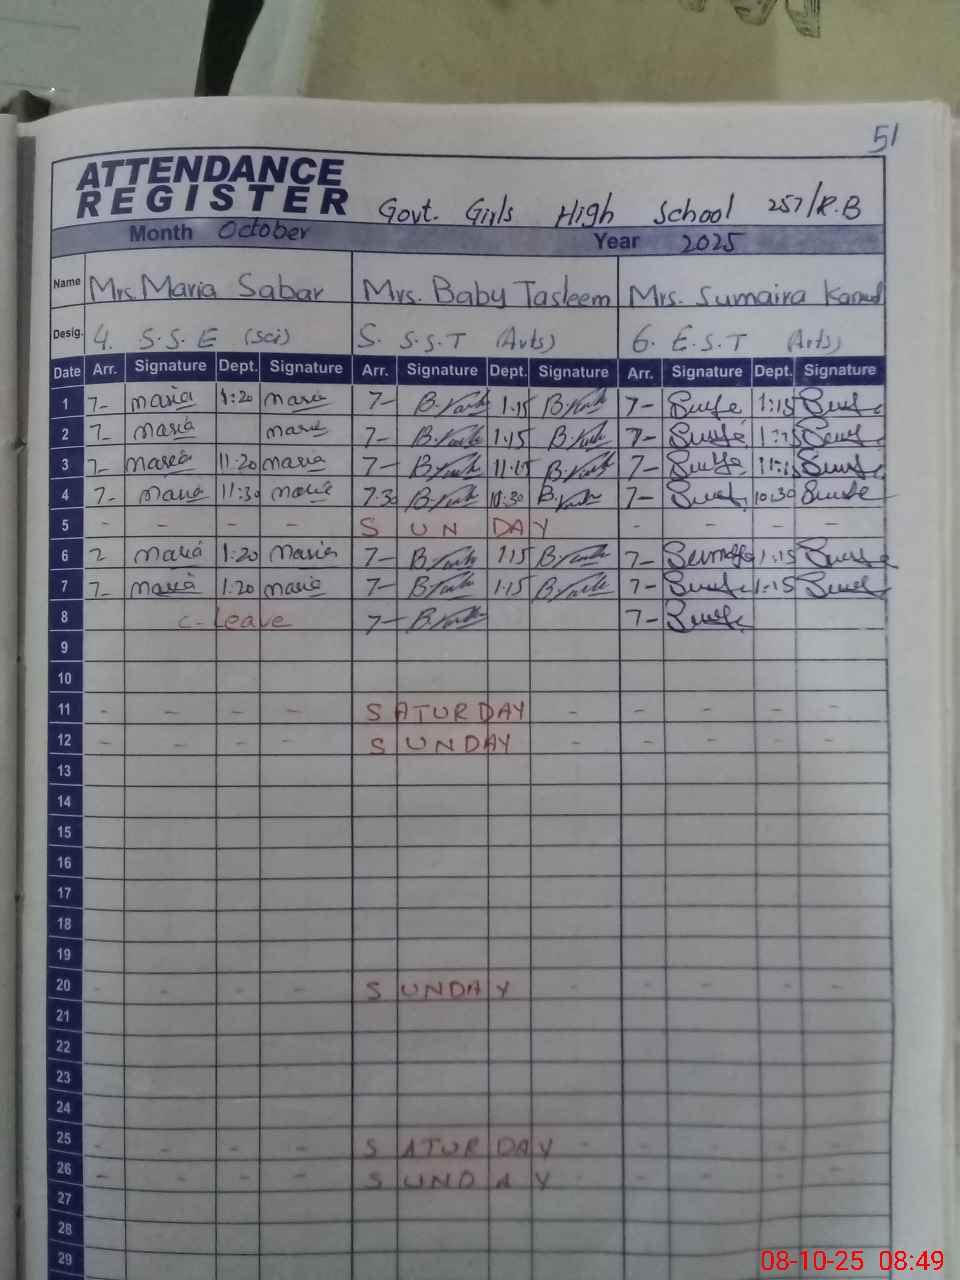 51
ATTENDANCE
REGISTER Govt. Girls High School 257/R.B
Month October Year 2025
Name Mrs. Maria Sabar Mrs. Baby Tasleem Mrs. Sumaira
Desig. 4. S.S.E (Sci) 5. S.S.T (Arts) 6. E.S.T (Arts)
Date Arr. Signature Dept. Signature Arr. Signature Dept. Signature Arr. Signature Dept. Signature
1 7- maria 1:20 maria 7- 1.15 7- 1:15
2 7- maria maria 7- 1.15 7-
3 7- maria 11:20 maria 7- 11:15 7-
4 7- maria 11:30 maria 7.30 10:30 7- 10:30
5 - - - - SUNDAY - - - -
6 maria 1:20 maria 7- 1:15 7- 1:15
7 7- maria 1:20 maria 7- 1:15 7- 1:15
8 C-Leave 7- 7-
9
10
11 - - - - SATURDAY - - - - -
12 - - - - SUNDAY - - - - -
13
14
15
16
17
18
19
20 - - - - SUNDAY - - - - -
21
22
23
24
25 - - - - SATURDAY - - - - -
26 - - - - SUNDAY - - - -
27
28
29
08-10-25 08:49